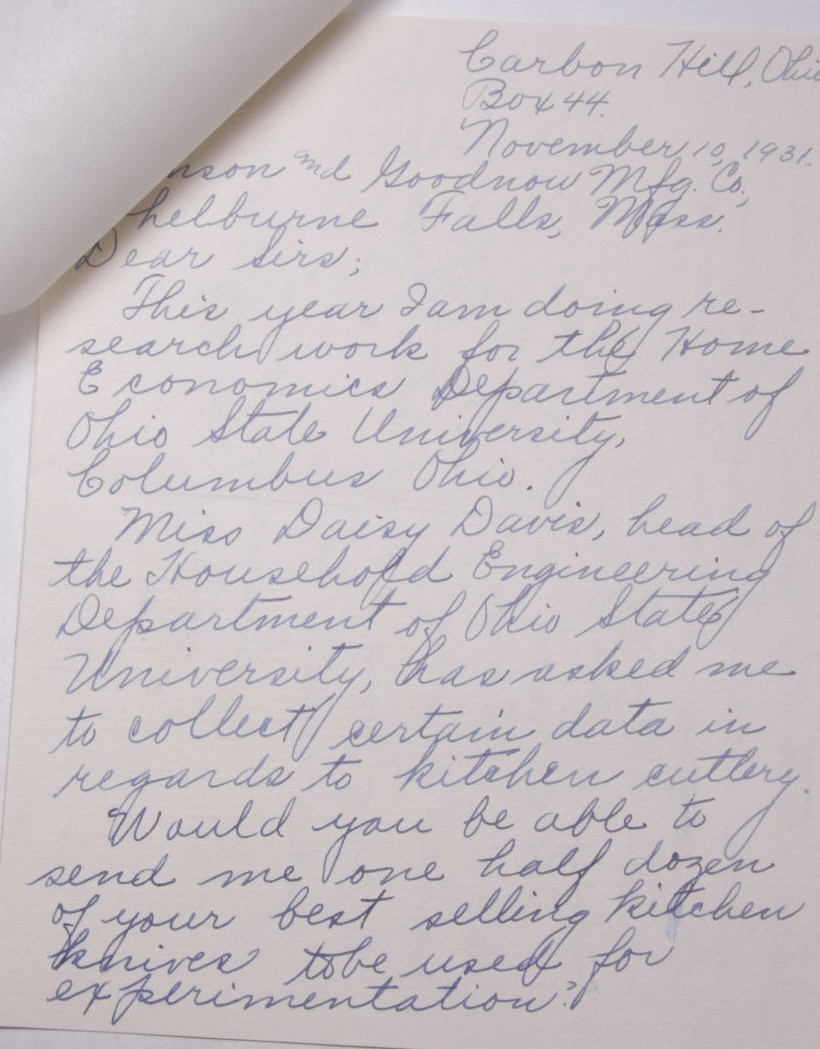 Carbon Hill, Ohio
Box 44.
November 10, 1931.
nson and Goodnow Mfg. Co.,
helburne Falls, Mass.
Dear Sirs;
This year I am doing re-
search work for the Home
Economics Department of
Ohio State University,
Columbus Ohio.
Miss Daisy Davis, head of
the Household Engineering
Department of Ohio State
University, has asked me
to collect certain data in
regards to kitchen cutlery.
Would you be able to
send me one half dozen
of your best selling kitchen
knives to be used for
experimentation?